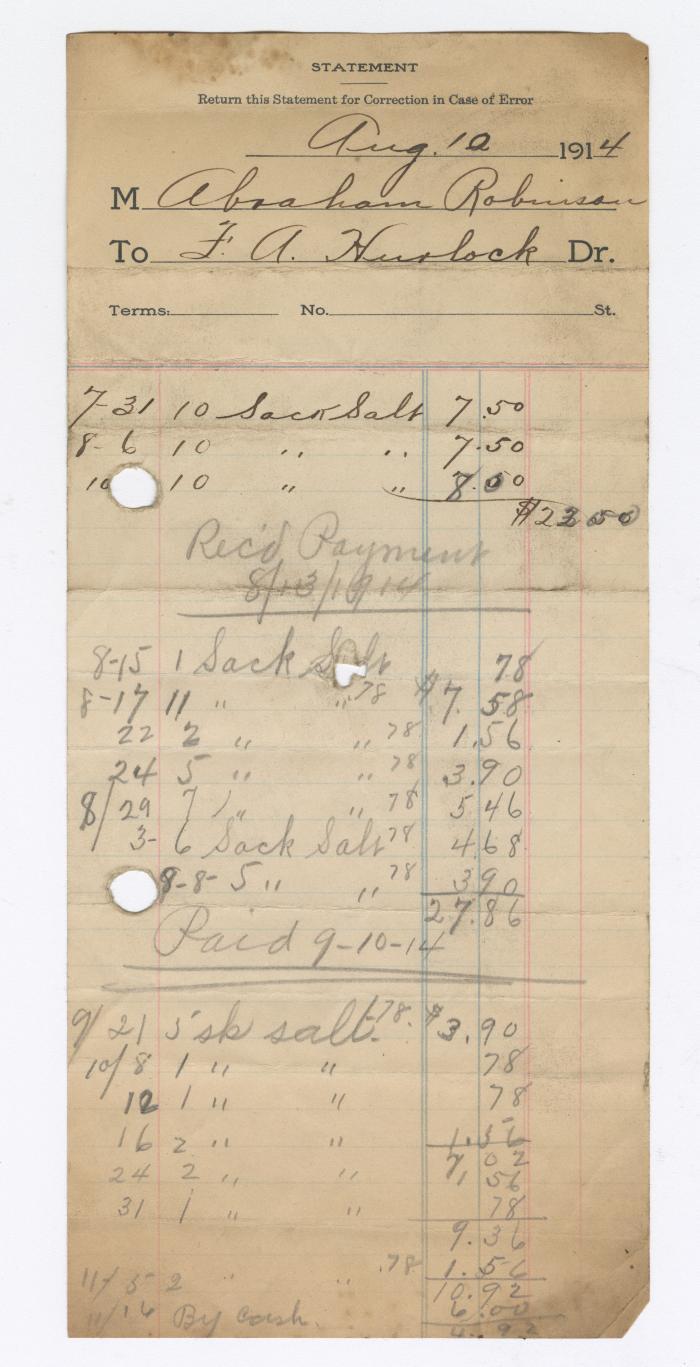 STATEMENT
Return this Statement for Correction in Case of Error
Aug. 10 1914
M Abraham Robinson
To F. A. Hurlock Dr.
Terms: No. St.
7-31 10 Sack Salt 7.50
8-6 10 " " 7.50
10 10 " " 7.50
$22.50
Rec'd Payment
8/13/1914
8-15 1 Sack Salt 78
8-17 11 " " .78 $7.58
22 2 " " 78 1.56
24 5 " " 78 3.90
8/29 7 " " 78 5 46
3- 6 Sack Salt 78 4 68
8-8- 5 " " 78 3 90
27.86
Paid 9-10-14
9/21 5 sk salt .78. $3.90
10/8 1 " " 78
12 1 " " 78
16 2 " " 1.56
7 02
24 2 " " 1 56
31 1 " " 78
9.36
11/5 2 " " .78 1.56
10.92
11/16 By Cash. 6.00
4.92